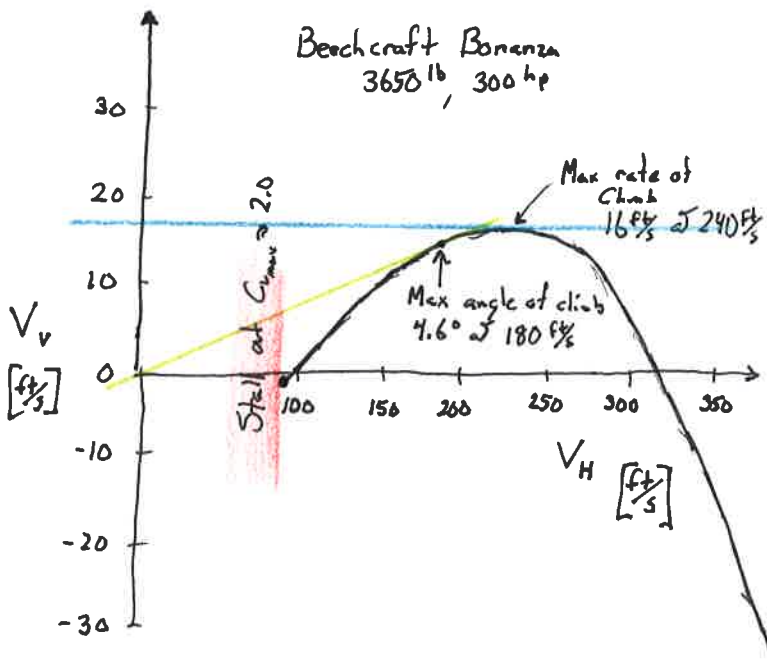 Beechcraft Bonanza
3650 lb, 300 hp
30
20
10
0
-10
-20
-30
V_v
[ft/s]
Stall at C_Lmax = 2.0
Max rate of
Climb
16 ft/s @ 240 ft/s
Max angle of climb
4.6° @ 180 ft/s
100 150 200 250 300 350
V_H
[ft/s]